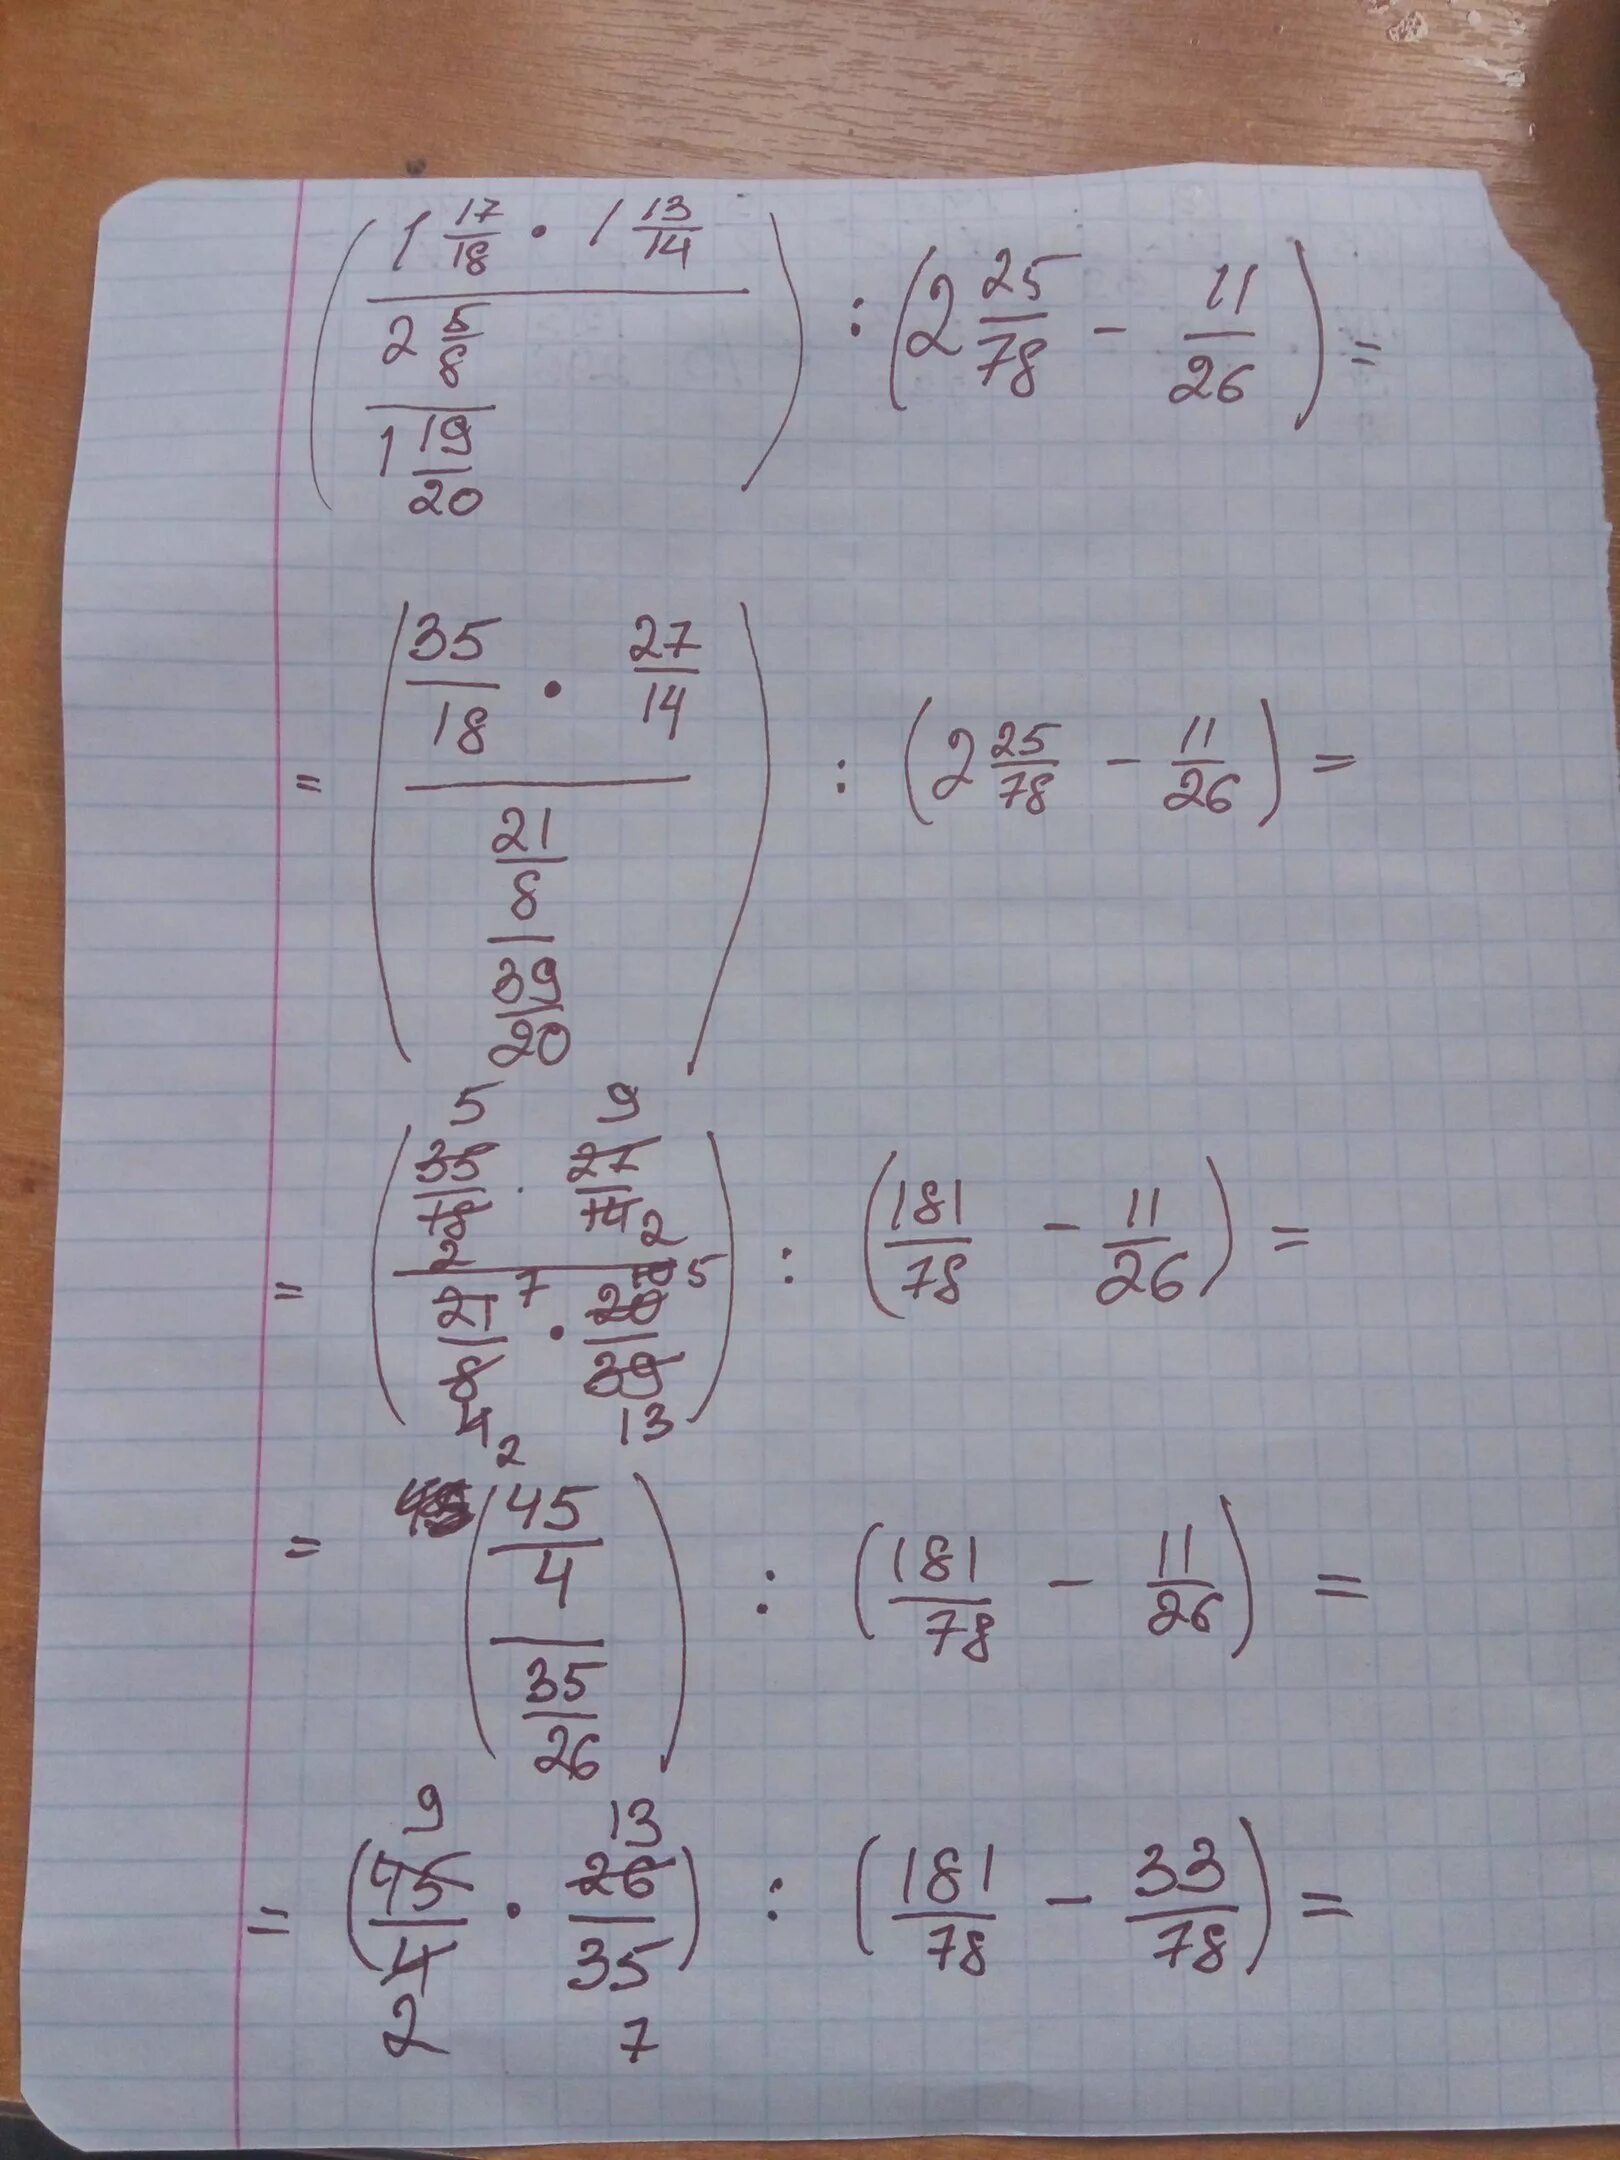 (1 17/18 · 1 13/14 / (2 5/8 / 1 19/20)) : (2 25/78 − 11/26) =
= (35/18 · 27/14 / (21/8 / 39/20)) : (2 25/78 − 11/26) =
5 9
= (35/18 · 27/14 / (21/8 · 20/39)) : (181/78 − 11/26) =
2 2
7 10 5
4 2 13
= (45/4 / 35/26) : (181/78 − 11/26) =
9 13
= (45/4 · 26/35) : (181/78 − 33/78) =
2 7